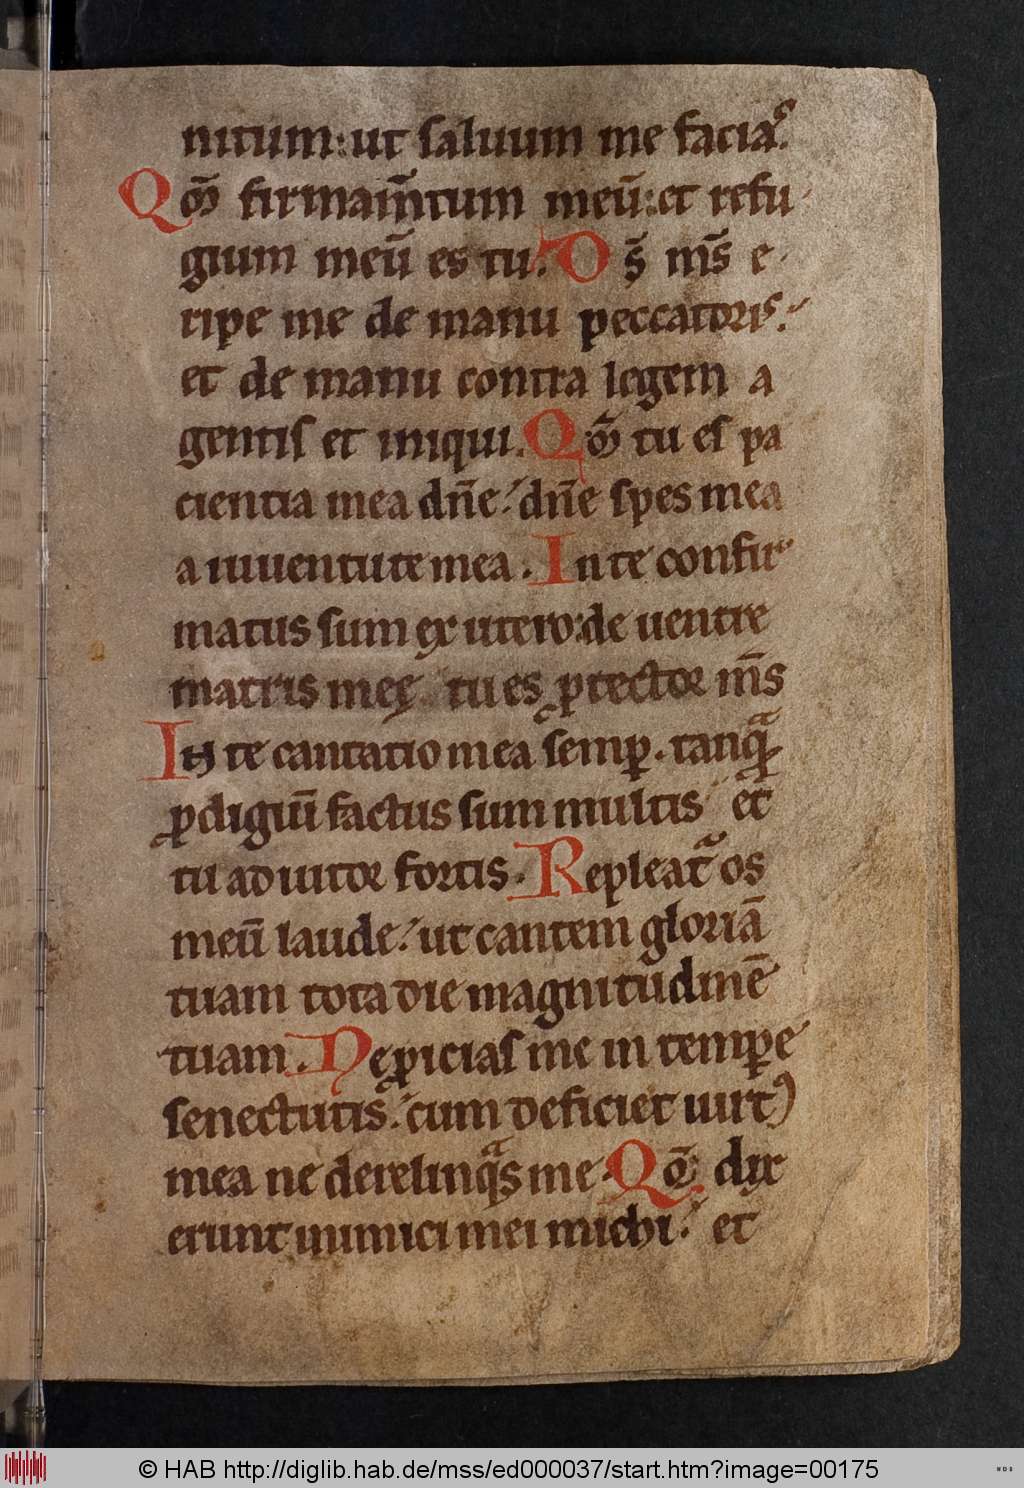 nitum: ut saluum me facias.
Qm̄ firmam̄tum meū: et refu
gium meū es tu. Ds̄ ms̄ e
ripe me de manu peccatoris.
et de manu contra legem a
gentis et iniqui. Qm̄ tu es pa
cientia mea dn̄e: dn̄e spes mea
a iuuentute mea. In te confir
matus sum ex utero: de uentre
matris meę tu es ꝓtector ms̄
In te cantatio mea semꝑ. tanqᷓ
ꝓdigiū factus sum multis et
tu adiutor fortis. Repleatᷓ os
meū laude: ut cantem gloriā
tuam tota die magnitudinē
tuam. Ne ꝓicias me in temꝑe
senectutis: cum deficiet uirtꝰ
mea ne derelinqᷓs me. Qm̄ dix
erunt inimici mei michi: et
© HAB http://diglib.hab.de/mss/ed000037/start.htm?image=00175